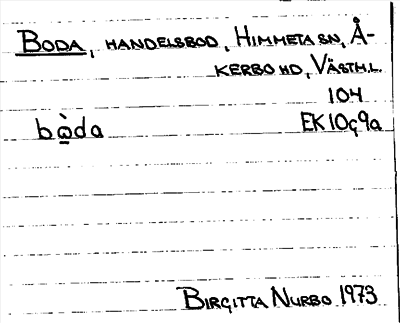 BODA, HANDELSBOD, HIMMETA SN, Å-
KERBO HD, VÄSTM.L.
104
bὼ̱da EK10ç9a
BIRGITTA NURBO 1973